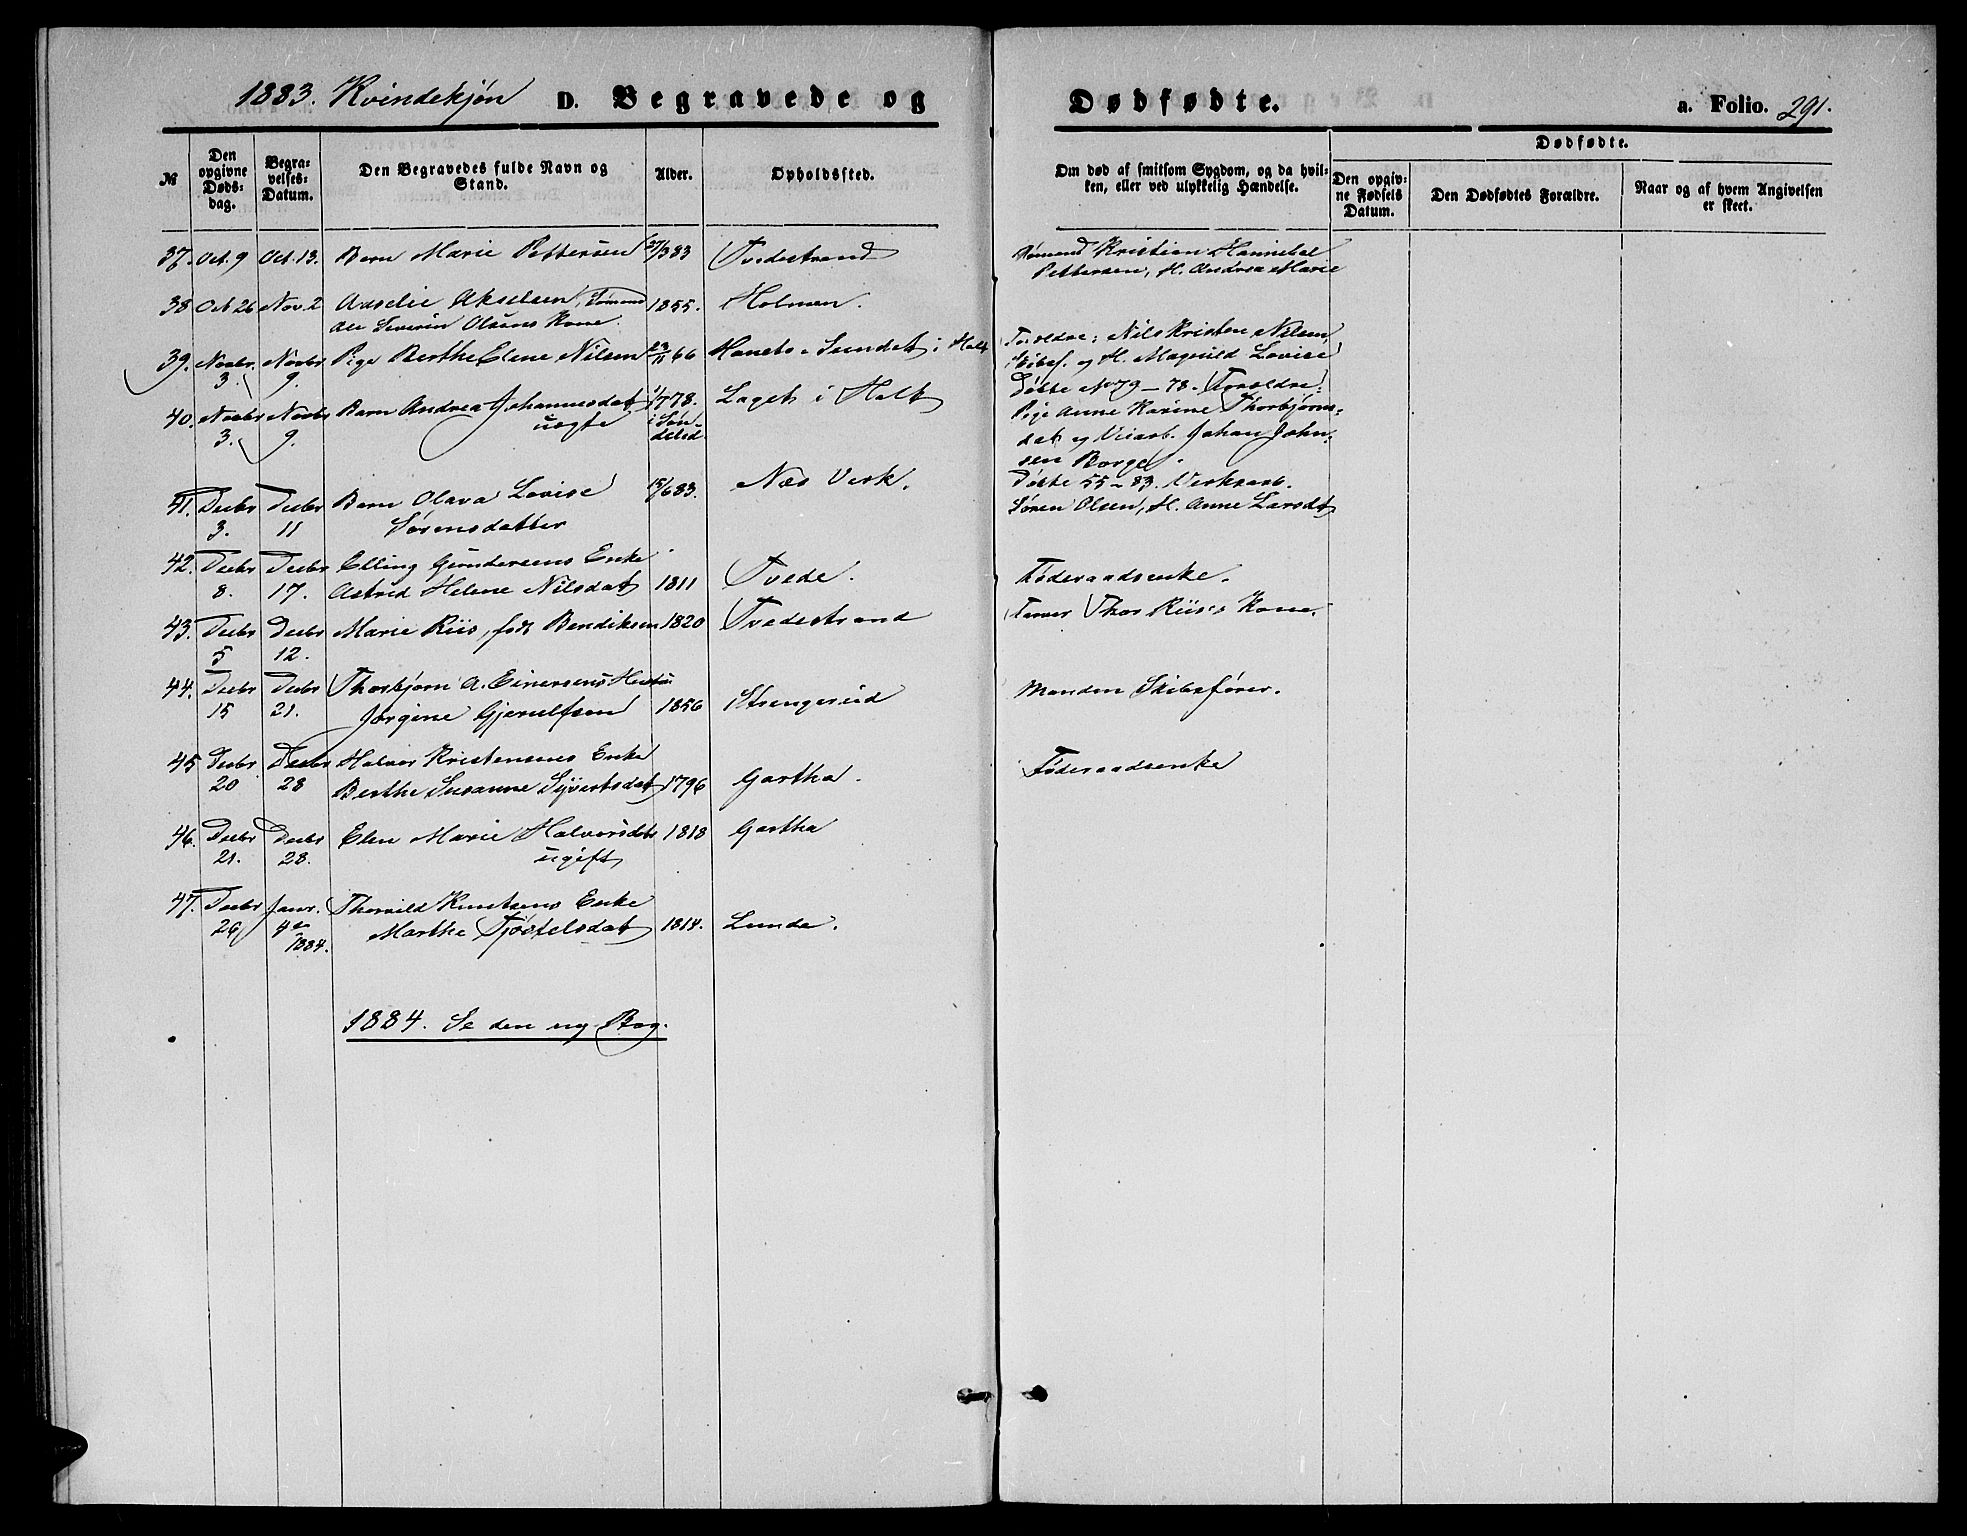 1883. Kvindekjøn D. Begravede og Dødfødte. a. Folio. 291.
№ Den opgivne Døds-dag. Begra-velses-Datum. Den Begravedes fulde Navn og Stand. Alder. Opholdssted. Om død af smitsom Sygdom, og da hvil-ken, eller ved ulykkelig Hændelse. Dødfødte. Den opgiv-ne Fødsels Datum. Den Dødfødtes Forældre. Naar og af hvem Angivelsen er skeet.
37. Oct. 9 Oct. 13. Barn Marie Pettersen 27/3 83 Tvedestrand Sømand Kristian Hannibal
Pettersen, H. Andrea Marie
38 Oct 26 Nov. 2 Aaselie Akselsen, Tømmermand 1855. Holmen.
Ole Severin Olsens Kone.
39. Novbr. 3. Novbr 9. Pige Berthe Elene Nilsen 23/11 66 Sundet i Holt Forældre: Nils Kristen Nilsen,
Skibsf. og H. Magnild Lovise
40. Novbr 3. Novbr 9. Barn Andrea Johannesdat uægte 1/7 78. i Søn-deled Laget i Holt Døbte No 79 - 78. Forældre:
Pige Anne Karine Thorbjørns-
dat og Veiarb. Johan John-
sen Borge.
41. Decbr 3. Decbr 11 Barn Olava Lovise 15/6 83. Næs Verk. Døbte 55 - 83. Verksarb.
Sørensdatter Søren Olsen, H. Anne Larsdt
42. Decbr 8. Decbr 17. Elling Gundersens Enke
Astrid Helene Nilsdat 1811 Tvede. Føderaadsenke.
43. Decbr 5 Decbr 12. Marie Riis, født Bendiksen 1820 Tvedestrand Farver Thor Riis's Kone.
44. Decbr 15 Decbr 21. Thorbjørn A. Einersens Hustru
Jørgine Gjerulfsen 1856 Strengerud Manden Skibsfører.
45 Decbr 20 Decbr 28 Halvor Kristensens Enke
Berthe Susanne Syvertsdat 1796 Gartha. Føderaadsenke
46. Decbr 21. Decbr 28. Elen Marie Halvorsdatr 1818 Gartha
ugift
47. Decbr 26 Janr. 4de 1884. Thorvild Knutsens Enke
Marthe Tjøstelsdat 1814. Lunde.
1884. Se den ny Bog.